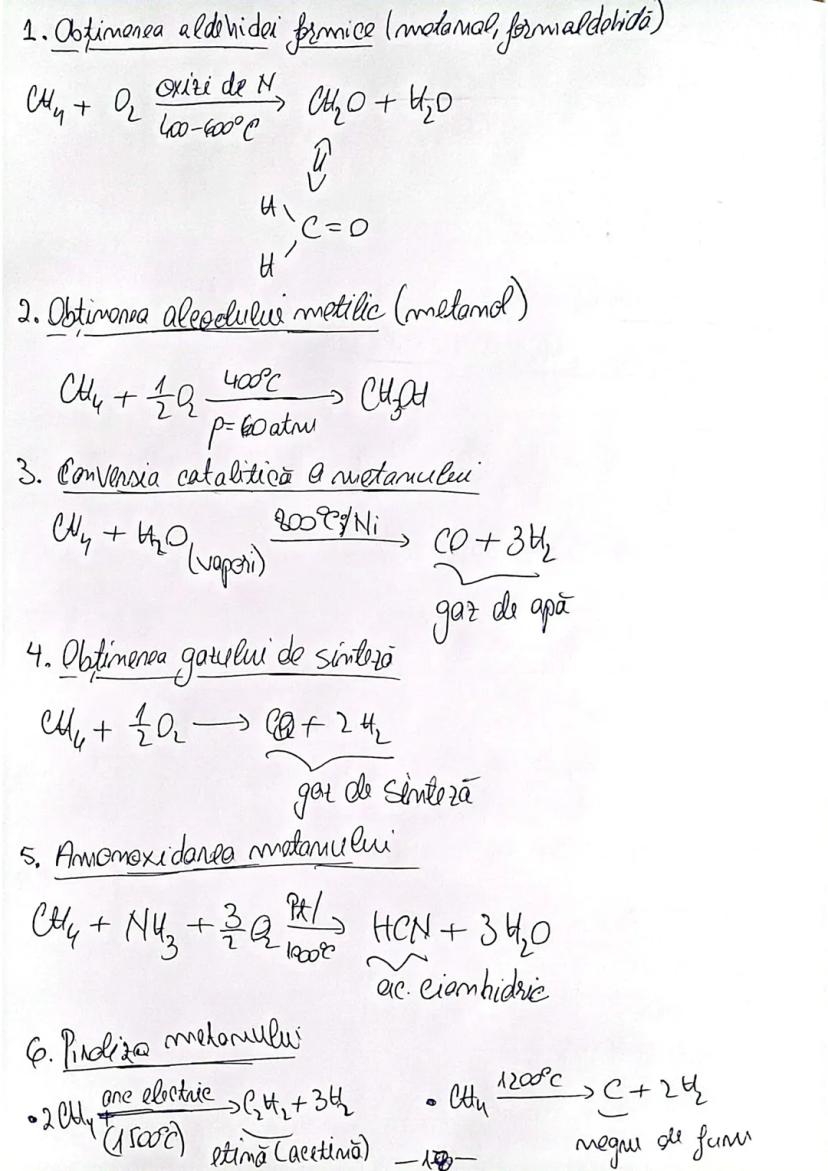 1. Obținerea aldehidei formice (metanal, formaldehidă)
CH₄ + O₂ oxizi de N → CH₂O + H₂O
400-600°C
⇕
H
C = O
H
2. Obținerea alcoolului metilic (metanol)
CH₄ + 1/2 O₂ 400°C → CH₃OH
p = 60 atm
3. Conversia catalitică a metanului
CH₄ + H₂O (vapori) 800°C/Ni → CO + 3H₂
gaz de apă
4. Obținerea gazului de sinteză
CH₄ + 1/2 O₂ → CO + 2H₂
gaz de sinteză
5. Amonoxidarea metanului
CH₄ + NH₃ + 3/2 O₂ Pt/ → HCN + 3H₂O
1000°C
ac. cianhidric
6. Piroliza metanului
• 2CH₄ arc electric → C₂H₂ + 3H₂
(1500°C) etină (acetină)
• CH₄ 1200°C → C + 2H₂
negru de fum